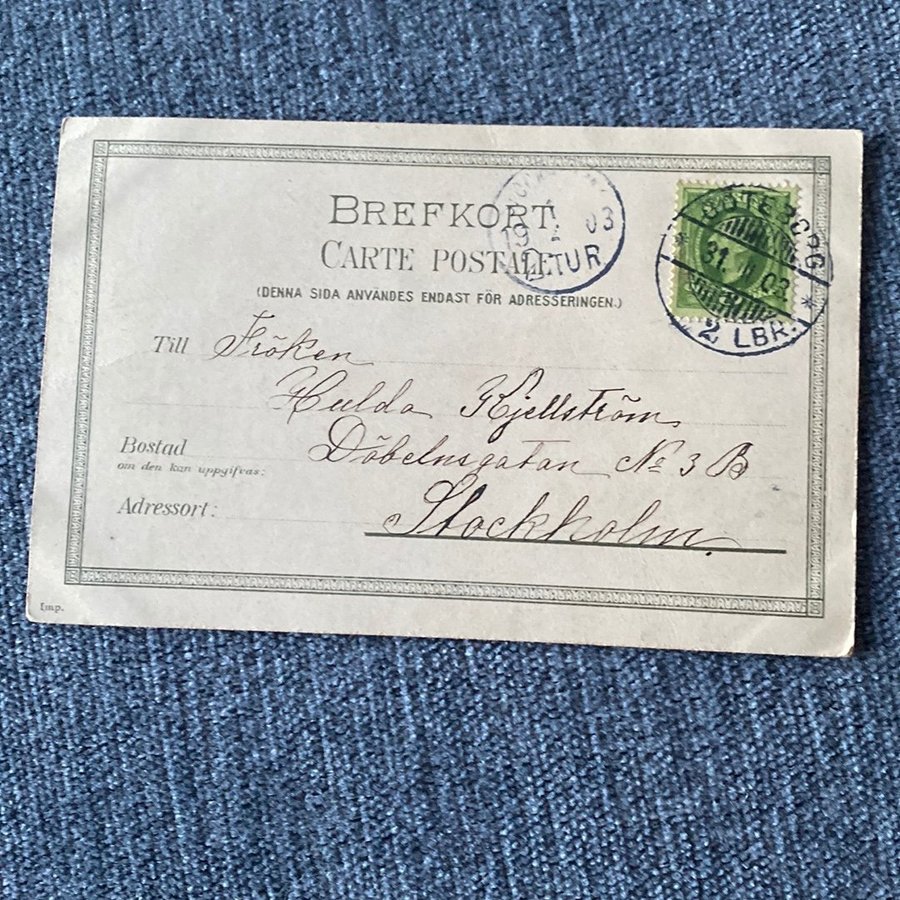 BREFKORT.
CARTE POSTALE
(DENNA SIDA ANVÄNDES ENDAST FÖR ADRESSERINGEN.)
19 03
TUR
GÖTEBORG
31. 03
2 LBR.
Till Fröken
Hulda Kjellström
Bostad Döbelnsgatan No 3 B
om den kan uppgifvas:
Adressort: Stockholm.
Imp.